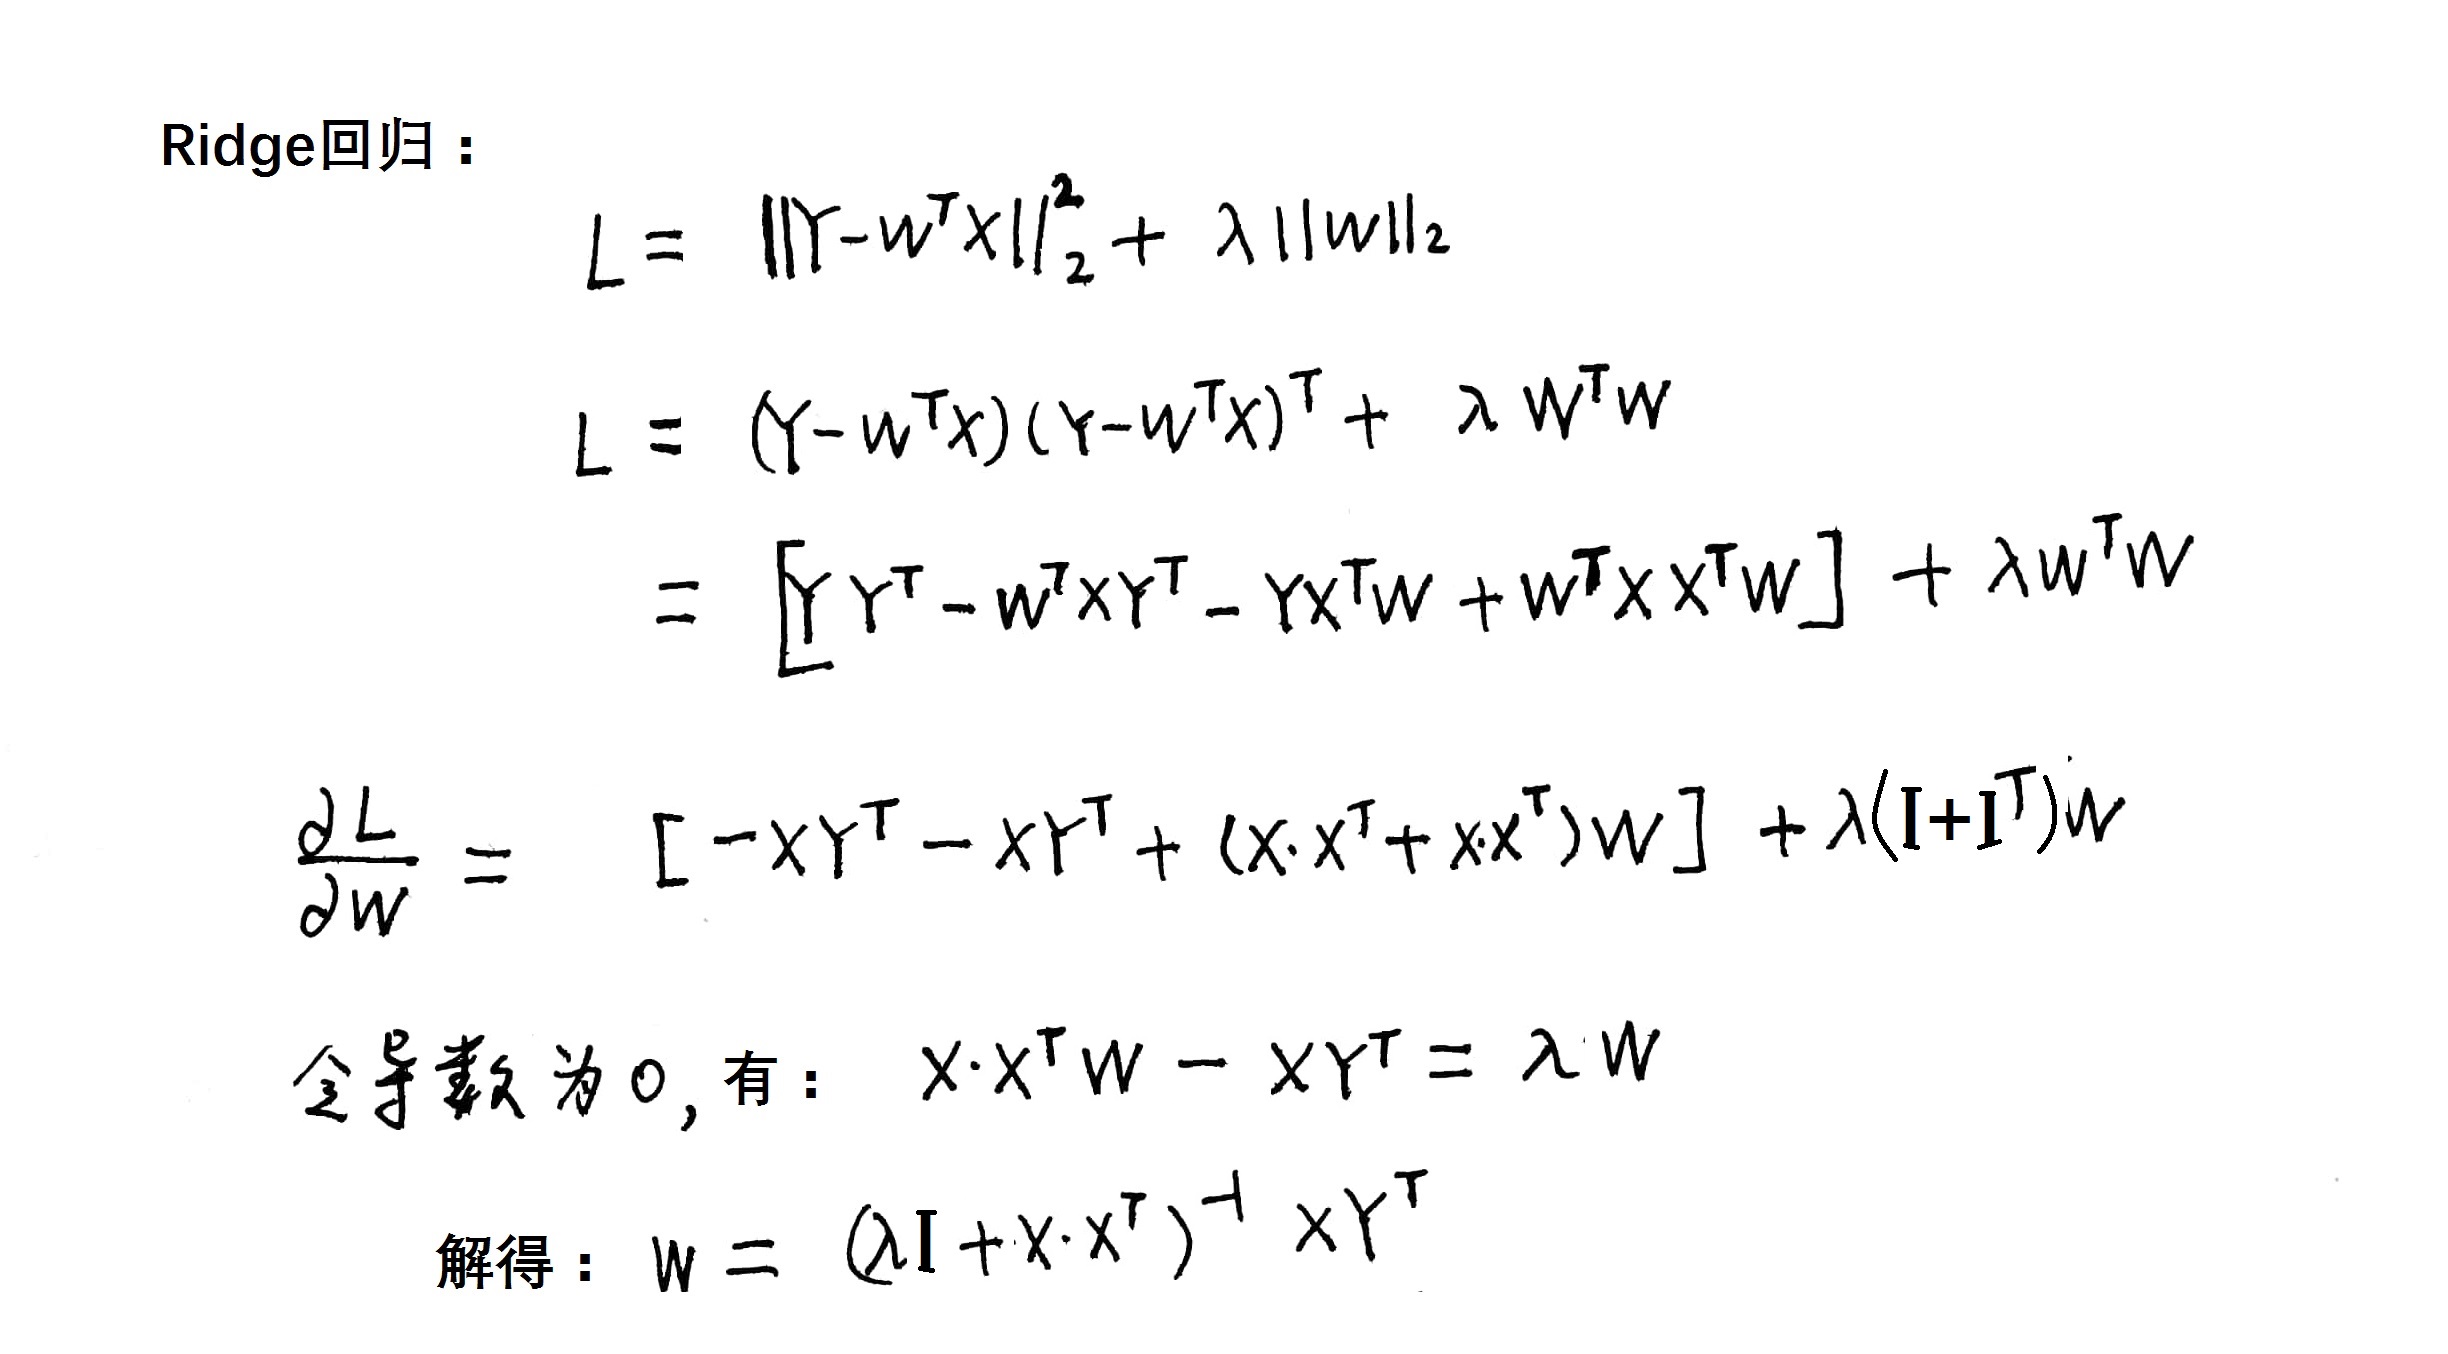 Ridge回归：
L = ||Y-W^T X||_2^2 + λ||W||_2
L = (Y-W^T X)(Y-W^T X)^T + λW^T W
= [YY^T - W^T XY^T - YX^T W + W^T XX^T W] + λW^T W
∂L/∂W = [-XY^T - XY^T + (X·X^T + X·X^T)W] + λ(I+I^T)W
令导数为0, 有： X·X^T W - XY^T = λW
解得： W = (λI + X·X^T)^-1 XY^T